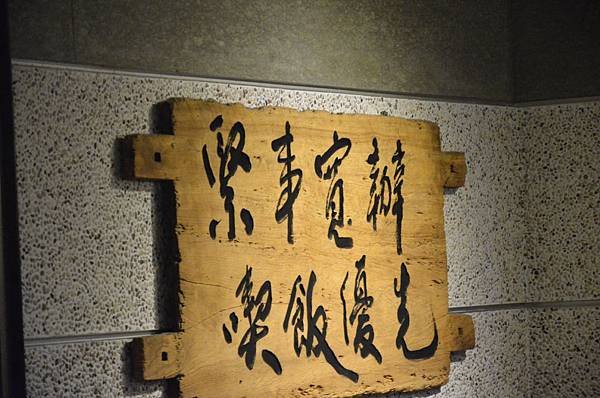 緊事寬辦
喫飯優先